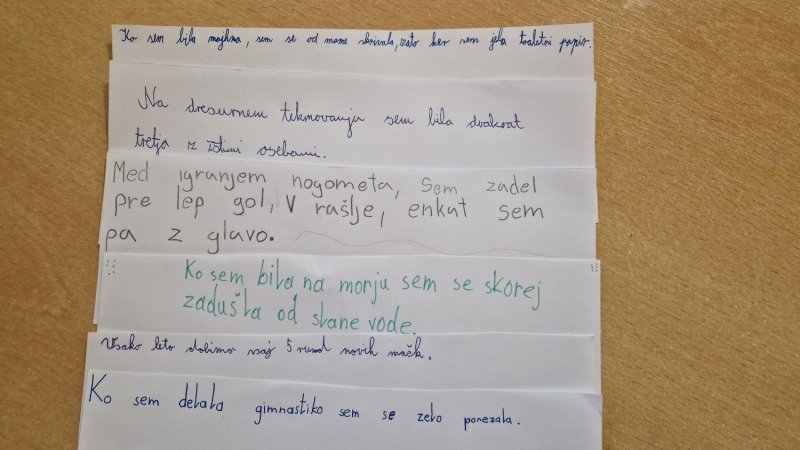 Ko sem bila majhna, sem se od mame skrivala, zato ker sem jela toaletni papir.
Na dresurnem tekmovanju sem bila dvakrat
tretja z istimi osebami.
Med igranjem nogometa, sem zadel
pre lep gol, V rašlje, enkat sem
pa z glavo.
Ko sem bila na morju sem se skorej
zadušla od slane vode.
Vsako leto dobimo vsaj 5 rund novih mačk.
Ko sem delala gimnastiko sem se zelo porezala.